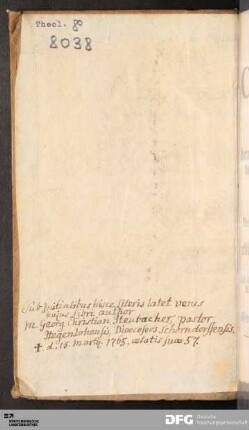 Theol. 8°
8038
Sub initialibus hisce literis latet verus
hujus libri author
M. Georg Christian Neubacher, pastor
Hegenlohensis, Dioeceseos Schorndorffensis.
† d. 15. martij. 1765. aetatis suae 57.
WÜRTTEMBERGISCHE
LANDESBIBLIOTHEK
DFG
Deutsche
Forschungsgemeinschaft